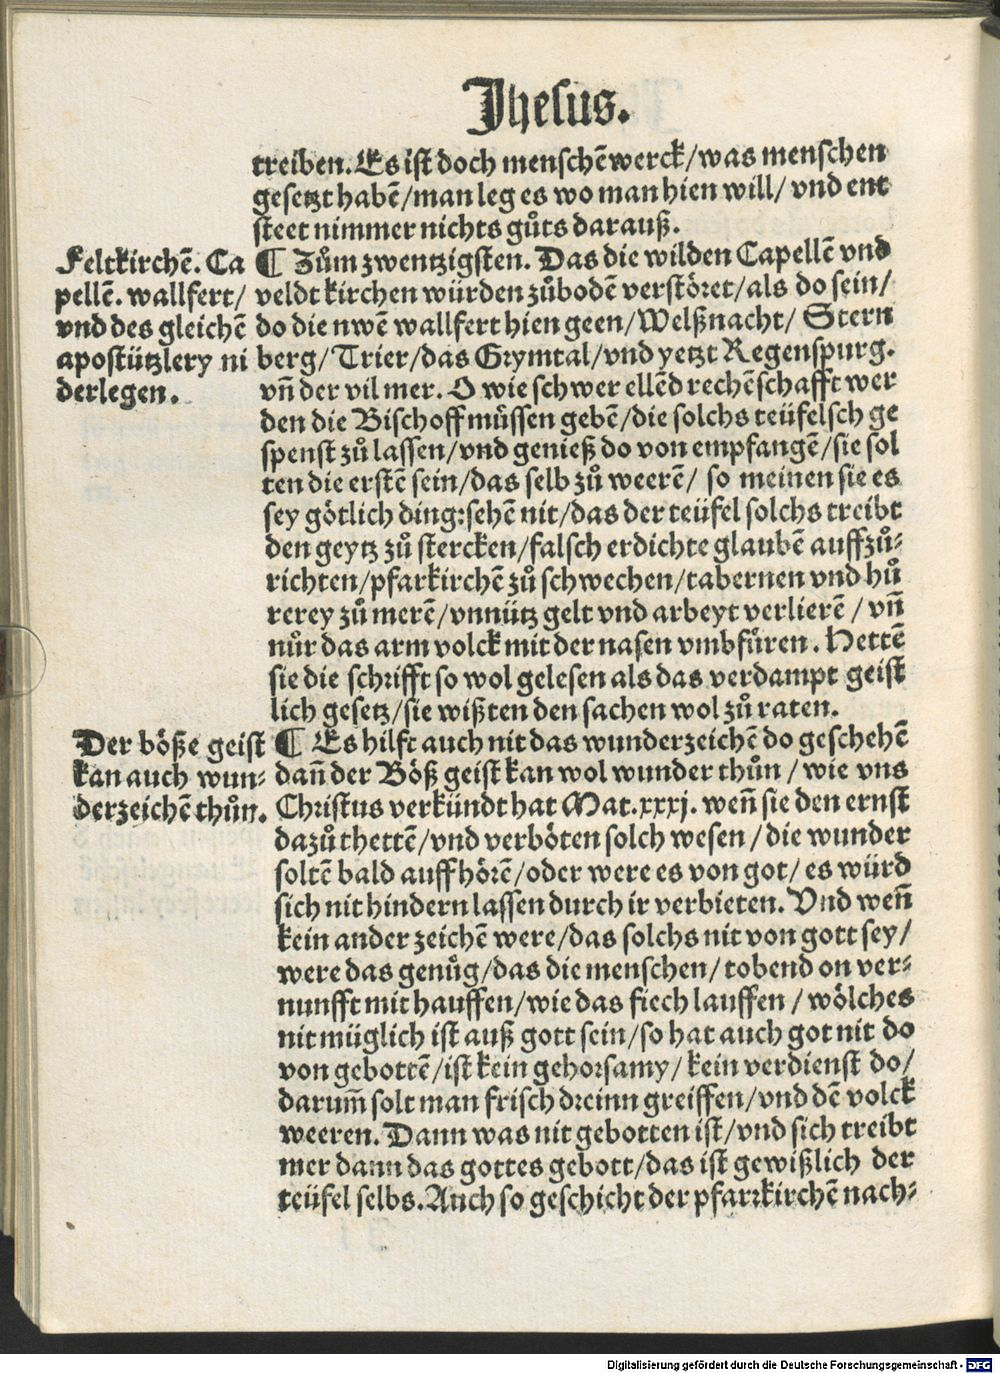 Jhesus.
treiben. Es ist doch menschē werck/was menschen
gesetzt habē/man leg es wo man hien will/ vnd ent
steet nimmer nichts gůts darauß.
Feltkirchē. Ca
pellē. wallfert/
vnd des gleichē
apostützlery ni
derlegen.
¶ Zům zwentzigsten. Das die wilden Capellē vnd
veldt kirchen würden zůbodē verstöret/als do sein/
do die nwē wallfert hien geen/Welßnacht/ Stern
berg/Trier/das Grymtal/vnd yetzt Regenspurg.
vn̄ der vil mer. O wie schwer ellēd rechēschafft wer
den die Bischoff müssen gebē/die solchs teüfelsch ge
spenst zů lassen/vnd genieß do von empfangē/sie sol
ten die erstē sein/das selb zů weerē/ so meinen sie es
sey götlich ding:sehē nit/das der teüfel solchs treibt
den geytz zů stercken/falsch erdichte glaubē auffzů-
richten/pfarkirchē zů schwechen/tabernen vnd hů
rerey zů merē/vnnütz gelt vnd arbeyt verlierē / vn̄
nůr das arm volck mit der nasen vmbfüren. Hettē
sie die schrifft so wol gelesen als das verdampt geist
lich gesetz/sie wißten den sachen wol zů raten.
Der böße geist
kan auch wun-
derzeichē thůn.
¶ Es hilft auch nit das wunderzeichē do geschehē
dan̄ der Böß geist kan wol wunder thůn / wie vns
Christus verkündt hat Mat.xxxj. wen̄ sie den ernst
dazů thettē/vnd verböten solch wesen / die wunder
soltē bald auffhörē/oder were es von got/ es würd
sich nit hindern lassen durch ir verbieten. Vnd wen̄
kein ander zeichē were/das solchs nit von gott sey/
were das genůg/das die menschen/tobend on ver-
nunfft mit hauffen/wie das fiech lauffen / wölches
nit müglich ist auß gott sein/so hat auch got nit do
von gebottē/ist kein gehorsamy/ kein verdienst do/
darum̄ solt man frisch dreinn greiffen/vnd dē volck
weeren. Dann was nit gebotten ist/vnd sich treibt
mer dann das gottes gebott/das ist gewißlich der
teüfel selbs. Auch so geschicht der pfarrkirchē nach-
Digitalisierung gefördert durch die Deutsche Forschungsgemeinschaft - DFG